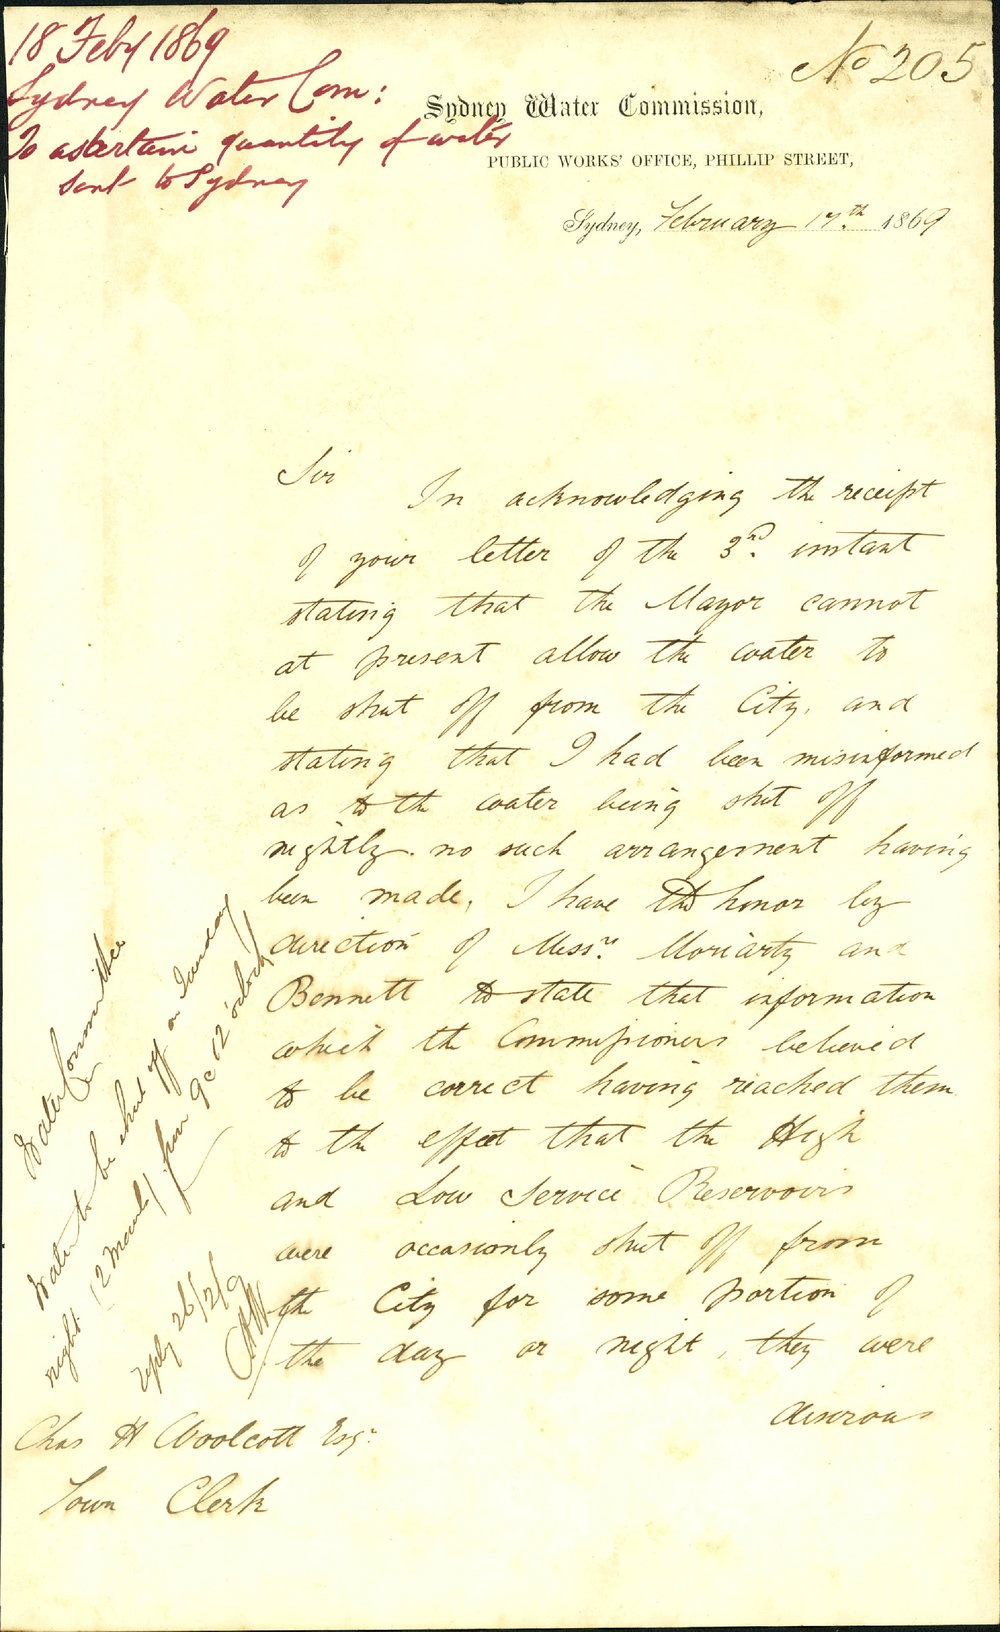 18 Feby 1869
Sydney Water Com:
To asertain quantity of water
sent to Sydney
No 205
Sydney Water Commission,
PUBLIC WORKS' OFFICE, PHILLIP STREET,
Sydney, February 17th. 1869
Sir
In acknowledging the receipt
of your letter of the 3rd. instant
stating that the Mayor cannot
at present allow the water to
be shut off from the City, and
stating that I had been misinformed
as to the water being shut off
nightly. no such arrangement having
been made, I have the honor by
direction of Messrs. Moriarty and
Bennett to state that information
which the Commissioners believed
to be correct having reached them
to the effect that the High
and Low Service Reservoirs
were occasionly shut off from
the City for some portion of
the day or night, they were
desirous
Water Committee
Water to be shut off on Sunday
night (2 March) from 9 to 12 o'clock
reply 26/2/9
CHW
Chas H Woolcott Esqr.
Town Clerk